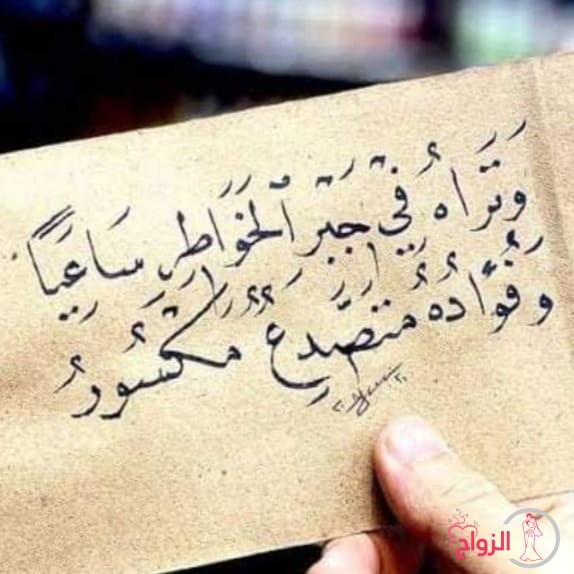 وَتَرَاهُ فِي جَبْرِ ٱلْخَوَاطِرِ سَاعِيَاً
وَفُؤَادُهُ مُتَصَدِّعٌ مَكْسُورُ
الزواج